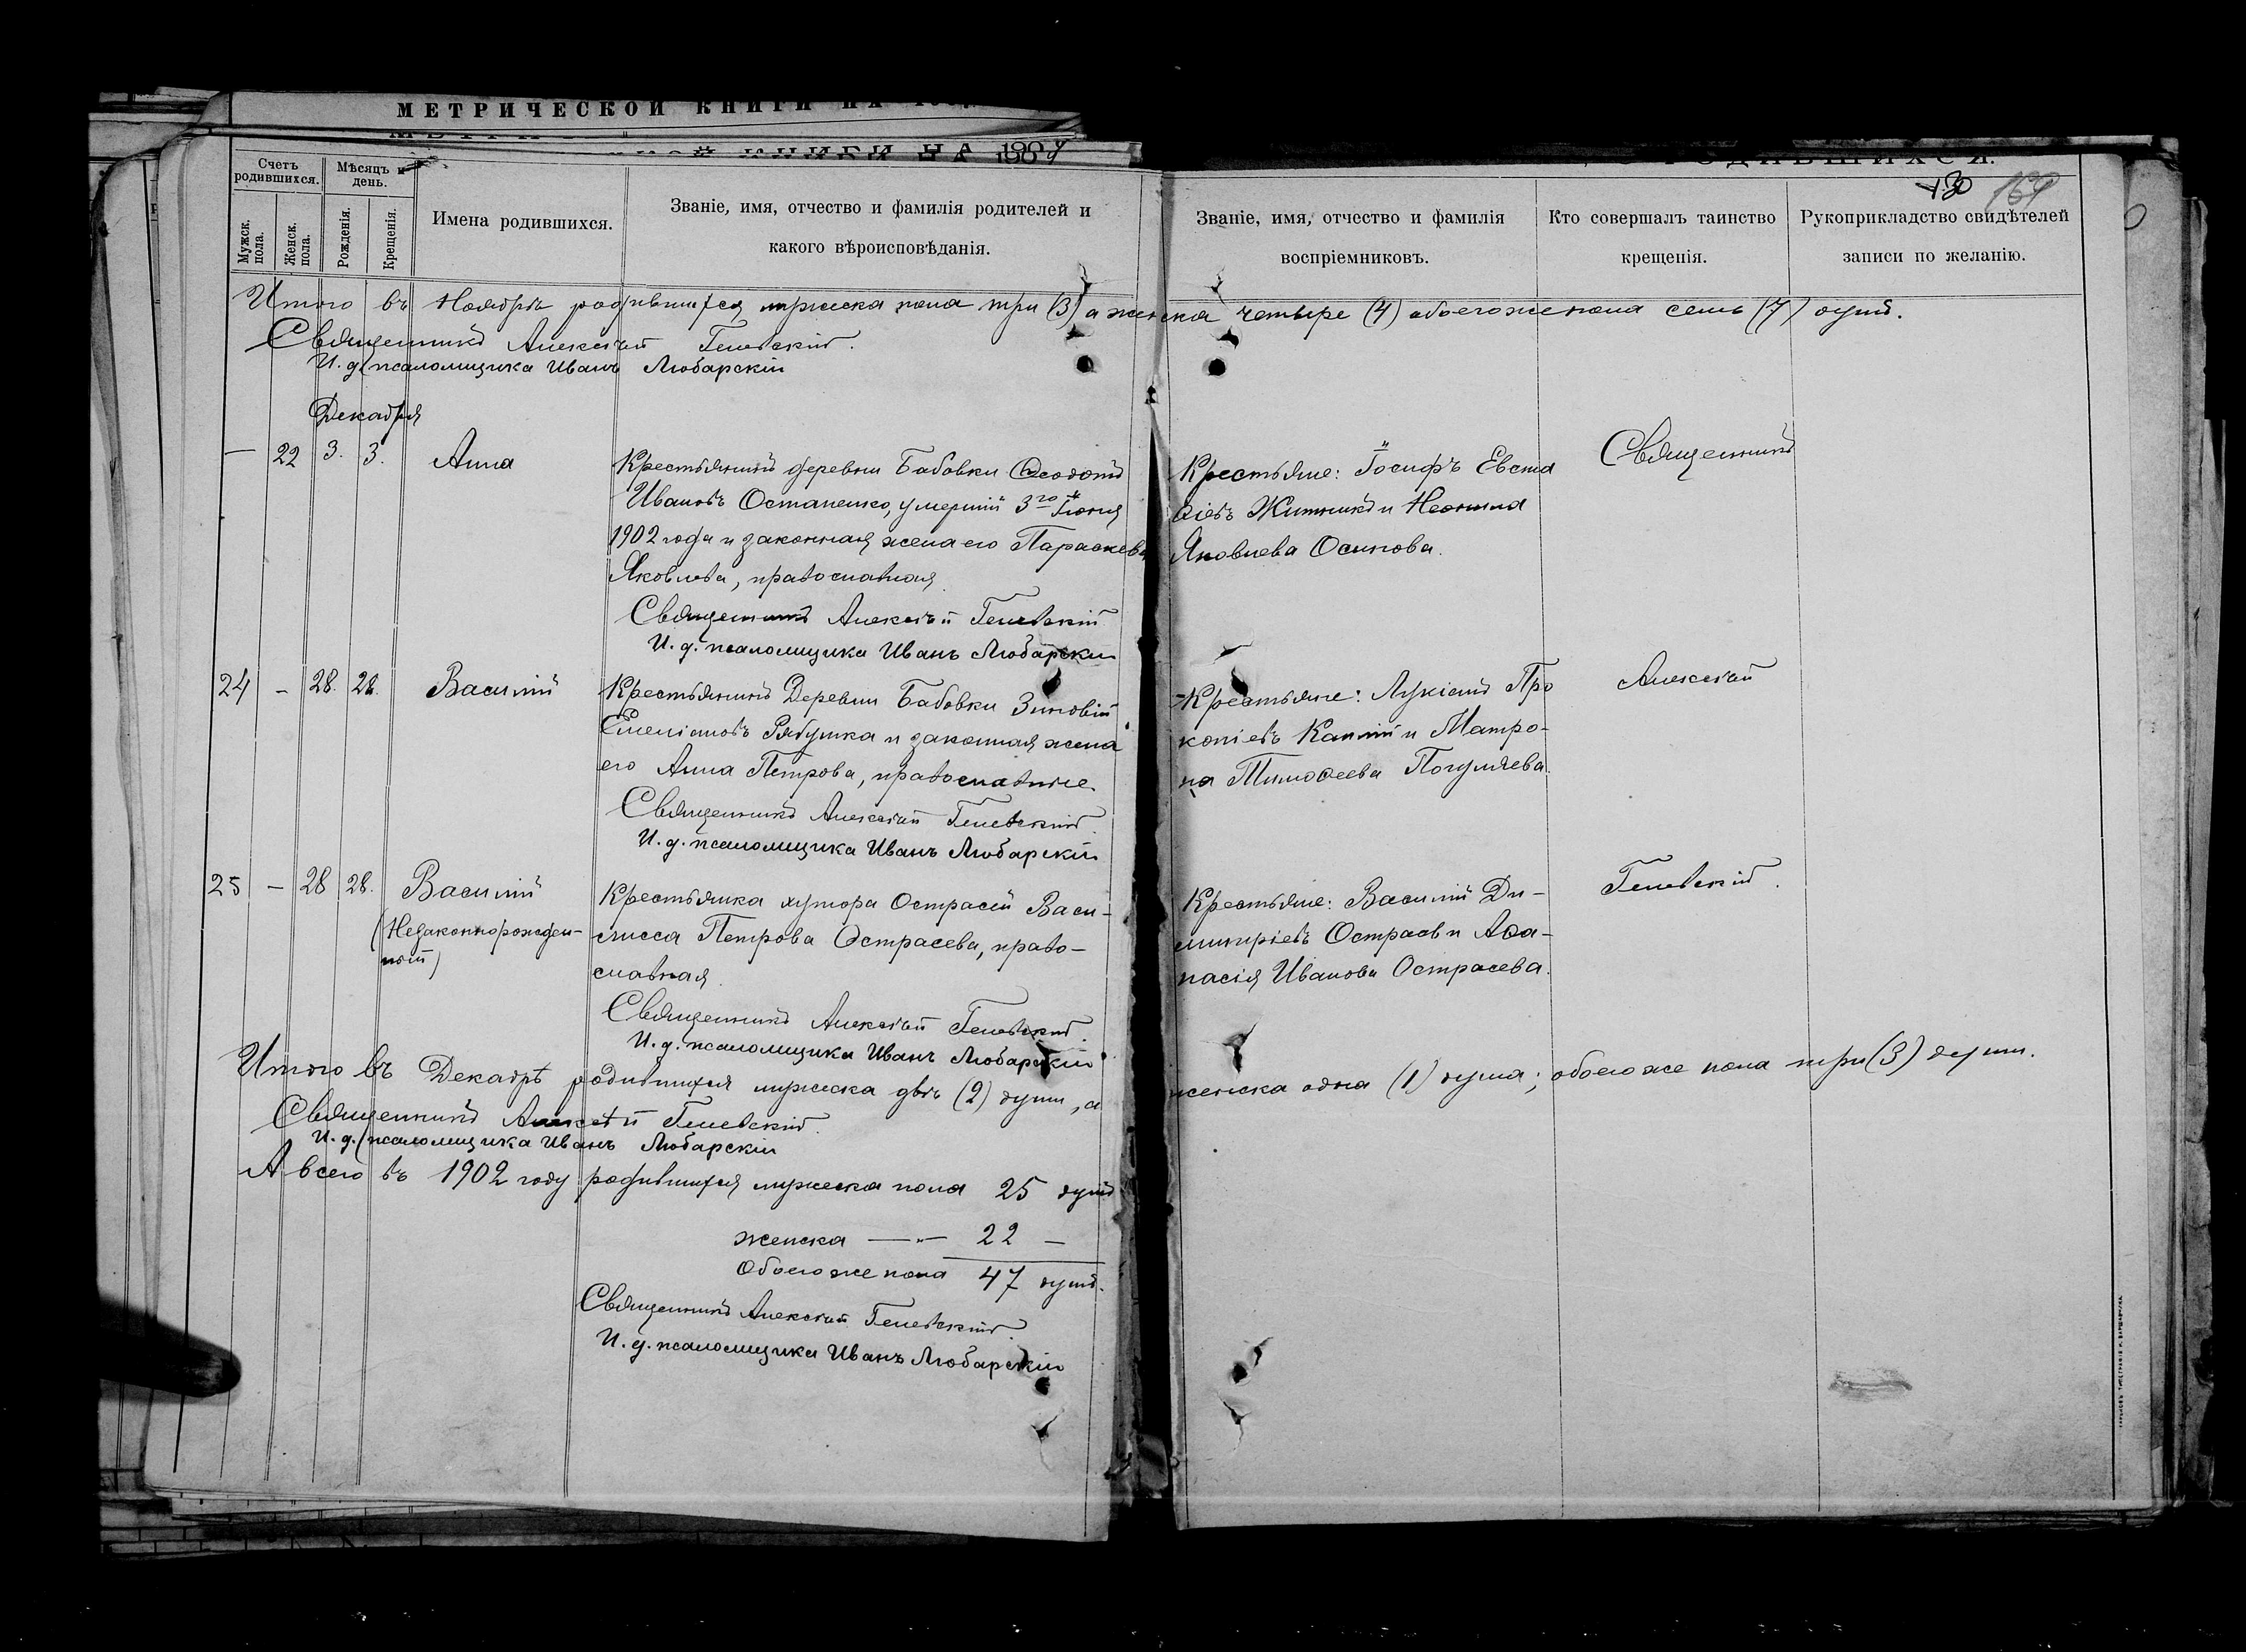 МЕТРИЧЕСКОЙ КНИГИ НА
КНИГИ НА
РОДИВШИХСЯ.
Счетъ родившихся.
Мѣсяцъ и день.
Мужск. пола.
Женск. пола.
Рожденія.
Крещенія.
Имена родившихся.
Званіе, имя, отчество и фамилія родителей и
какого вѣроисповѣданія.
Званіе, имя, отчество и фамилія
воспріемниковъ.
Кто совершалъ таинство
крещенія.
Рукоприкладство свидѣтелей
записи по желанію.
Итого въ Ноябрѣ родившихся мужеска пола три (3) а женска четыре (4) обоегоже пола семь (7) душъ.
Священникъ Алексѣй
И. д. псаломщика Иванъ Любарскій
Декабря
— 22 3. 3. Анна
Крестьянинъ деревни Бабовки Ѳеодотъ
Ивановъ Остапенко, умершій 3го Іюня
1902 года и законная жена его Параскева
Яковлева, православная.
Священникъ Алексѣй
И. д. псаломщика Иванъ Любарскій
Крестьяне: Іосифъ Евста
ѳіевъ Житникъ и Неонила
Яковлева Осипова.
Священникъ
24 — 28. 28. Василій
Крестьянинъ Деревни Бабовки Зиновій
Емеліановъ Рябушка и законная жена
его Анна Петрова, православные.
Священникъ Алексѣй
И. д. псаломщика Иванъ Любарскій
Крестьяне: Лукіанъ Про
копіевъ и Матро-
на Тимоѳеева
Алексѣй
25 — 28 28. Василій
(Незаконнорожден-
ный)
Крестьянка хутора Острасей Васи-
лисса Петрова Остраева, право-
славная.
Священникъ Алексѣй
И. д. псаломщика Иванъ Любарскій
Крестьяне: Василій Ди-
митріевъ и Аѳа-
насія Иванова Остраева.
Итого въ Декабрѣ родившихся мужеска двѣ (2) души, а женска одна (1) душа; обоегоже пола три (3) души.
Священникъ Алексѣй
И. д. псаломщика Иванъ Любарскій
А всего въ 1902 году родившихся мужеска пола 25 душъ
женска —„— 22 —
Обоегоже пола 47 душъ.
Священникъ Алексѣй
И. д. псаломщика Иванъ Любарскій